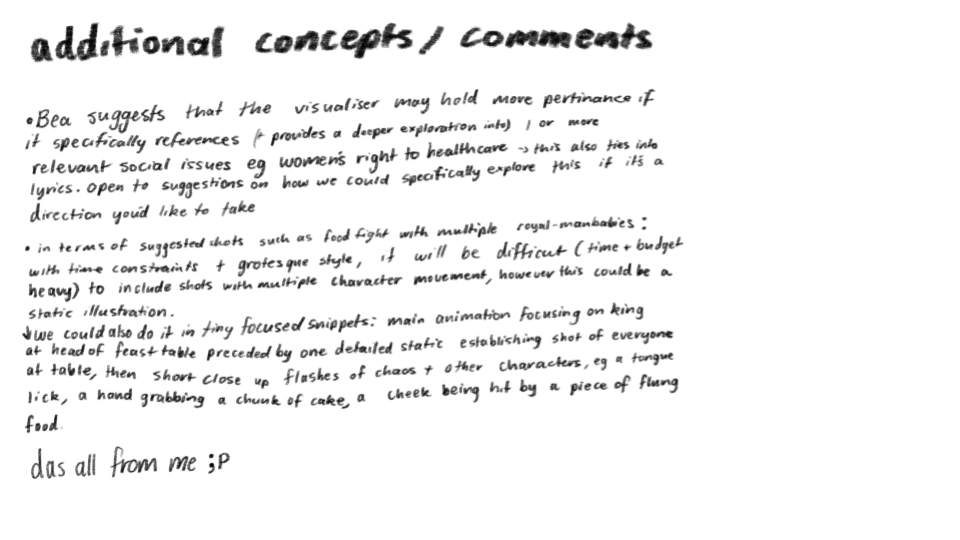 additional concepts / comments
• Bea suggests that the visualiser may hold more pertinance if
it specifically references (+ provides a deeper exploration into) 1 or more
relevant social issues eg women's right to healthcare → this also ties into
lyrics. open to suggestions on how we could specifically explore this if it's a
direction you'd like to take
• in terms of suggested shots such as food fight with multiple royal-manbabies:
with time constraints + grotesque style, it will be difficult (time + budget
heavy) to include shots with multiple character movement, however this could be a
static illustration.
↓ we could also do it in tiny focused snippets: main animation focusing on king
at head of feast table preceded by one detailed static establishing shot of everyone
at table, then short close up flashes of chaos + other characters, eg a tongue
lick, a hand grabbing a chunk of cake, a cheek being hit by a piece of flung
food.
das all from me ;P